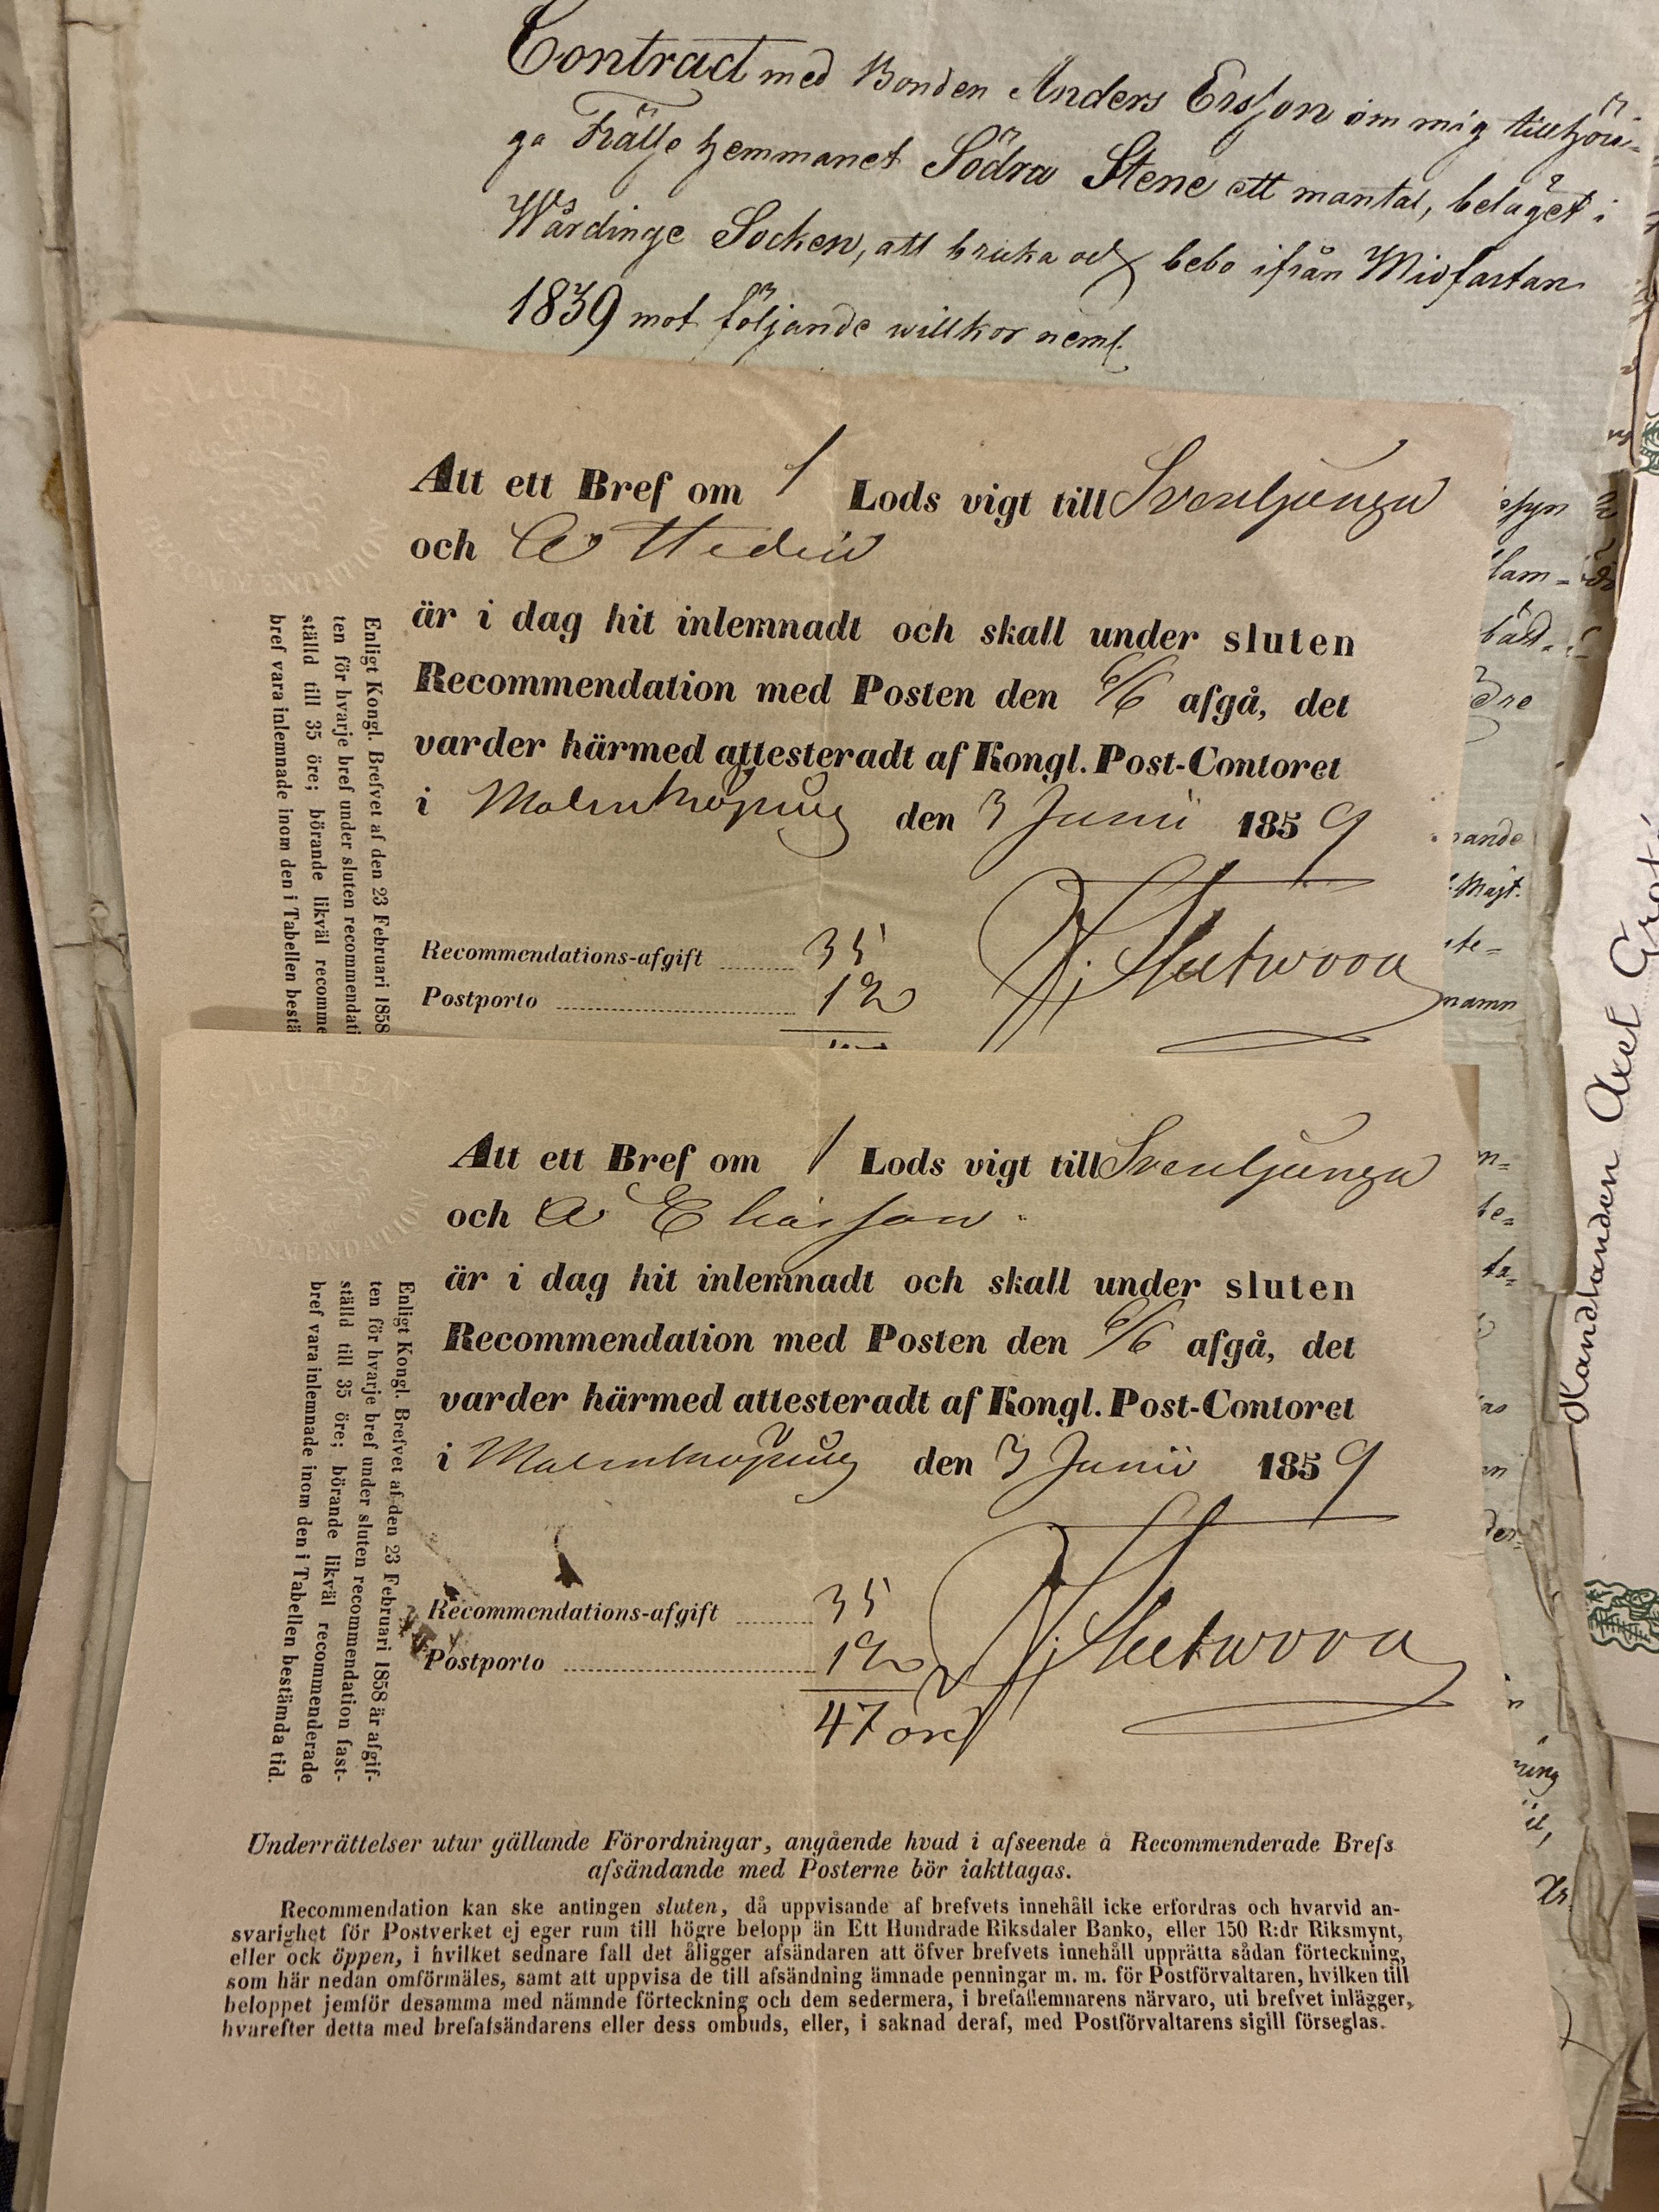 Contract med Bonden Anders Ersson om mig tillhöri-
ga Frälse hemmanet Södra Stene ett mantal, beläget i
Wårdinge Socken, att bruka och bebo ifrån Midfastan
1839 mot följande willkor neml.
SLUTEN
Att ett Bref om 1 Lods vigt till Svenljunga
och A Hedin
är i dag hit inlemnadt och skall under sluten
Recommendation med Posten den 6/6 afgå, det
varder härmed attesteradt af Kongl. Post-Contoret
i Malmköping den 3 Junii 1859
Recommendations-afgift 35
Postporto 12
Fleetwood
Enligt Kongl. Brefvet af den 23 Februari 1858
ten för hvarje bref under sluten recommendati
ställd till 35 öre; börande likväl recomme
bref vara inlemnade inom den i Tabellen bestä
SLUTEN
RECOMMENDATION
Att ett Bref om 1 Lods vigt till Svenljunga
och A Eliasson
är i dag hit inlemnadt och skall under sluten
Recommendation med Posten den 6/6 afgå, det
varder härmed attesteradt af Kongl. Post-Contoret
i Malmköping den 3 Junii 1859
Recommendations-afgift 35
Postporto 12
47 öre
Fleetwood
Enligt Kongl. Brefvet af den 23 Februari 1858 är afgif-
ten för hvarje bref under sluten recommendation fast-
ställd till 35 öre; börande likväl recommenderade
bref vara inlemnade inom den i Tabellen bestämda tid.
Underrättelser utur gällande Förordningar, angående hvad i afseende å Recommenderade Brefs
afsändande med Posterne bör iakttagas.
Recommendation kan ske antingen sluten, då uppvisande af brefvets innehåll icke erfordras och hvarvid an-
svarighet för Postverket ej eger rum till högre belopp än Ett Hundrade Riksdaler Banko, eller 150 R:dr Riksmynt,
eller ock öppen, i hvilket sednare fall det åligger afsändaren att öfver brefvets innehåll upprätta sådan förteckning,
som här nedan omförmäles, samt att uppvisa de till afsändning ämnade penningar m. m. för Postförvaltaren, hvilken till
beloppet jemför desamma med nämnde förteckning och dem sedermera, i brefaflemnarens närvaro, uti brefvet inlägger,
hvarefter detta med brefafsändarens eller dess ombuds, eller, i saknad deraf, med Postförvaltarens sigill förseglas.
Handlanden Axel